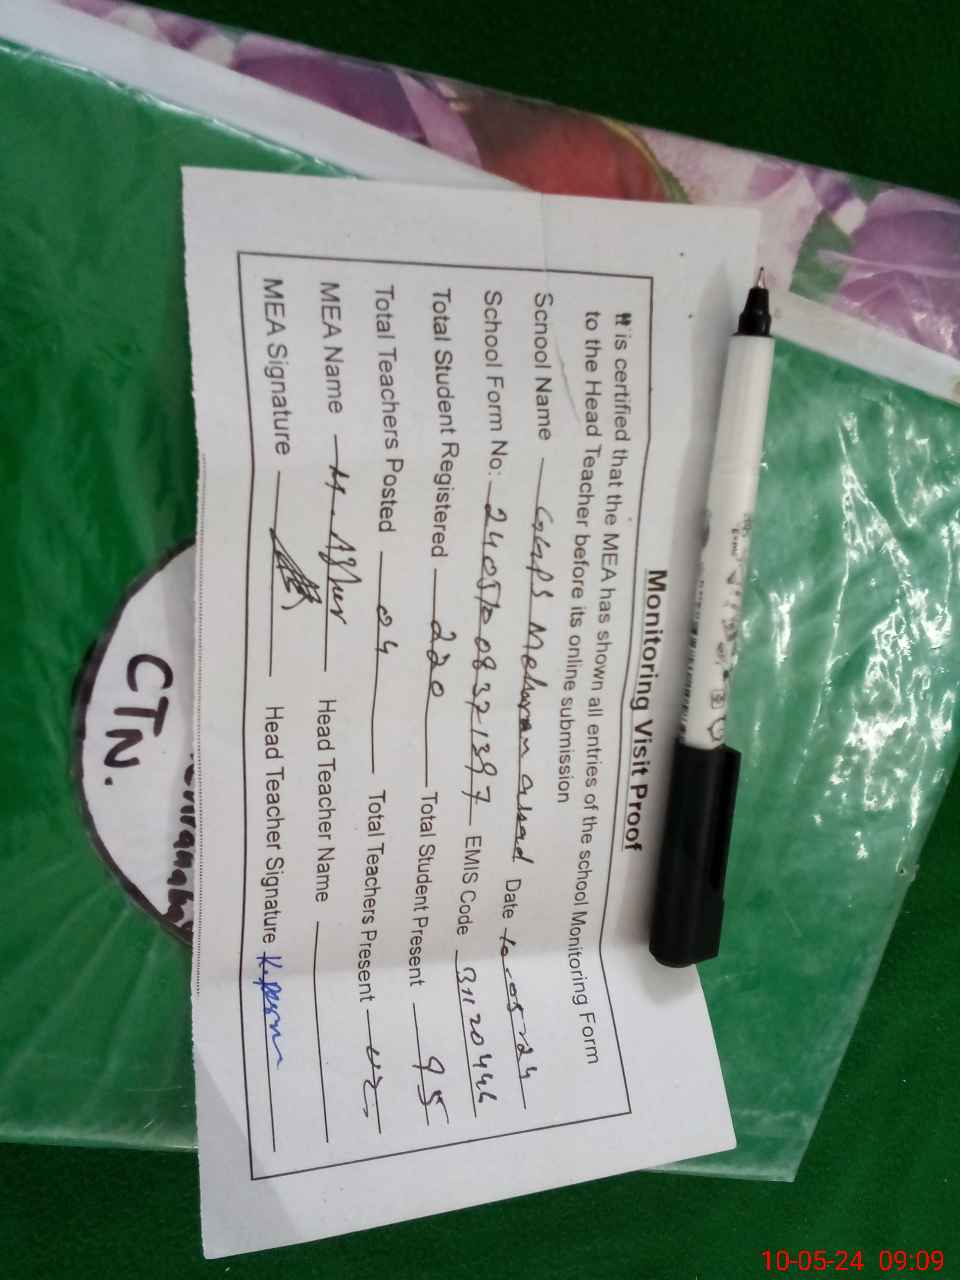 Monitoring Visit Proof
It is certified that the MEA has shown all entries of the school Monitoring Form
to the Head Teacher before its online submission
School Name GGPS Meharan abad Date 10-05-24
School Form No: 24051008371397 EMIS Code 31120446
Total Student Registered 220 Total Student Present 95
Total Teachers Posted 04 Total Teachers Present
MEA Name M. Head Teacher Name
MEA Signature Head Teacher Signature
CTN.
10-05-24 09:09